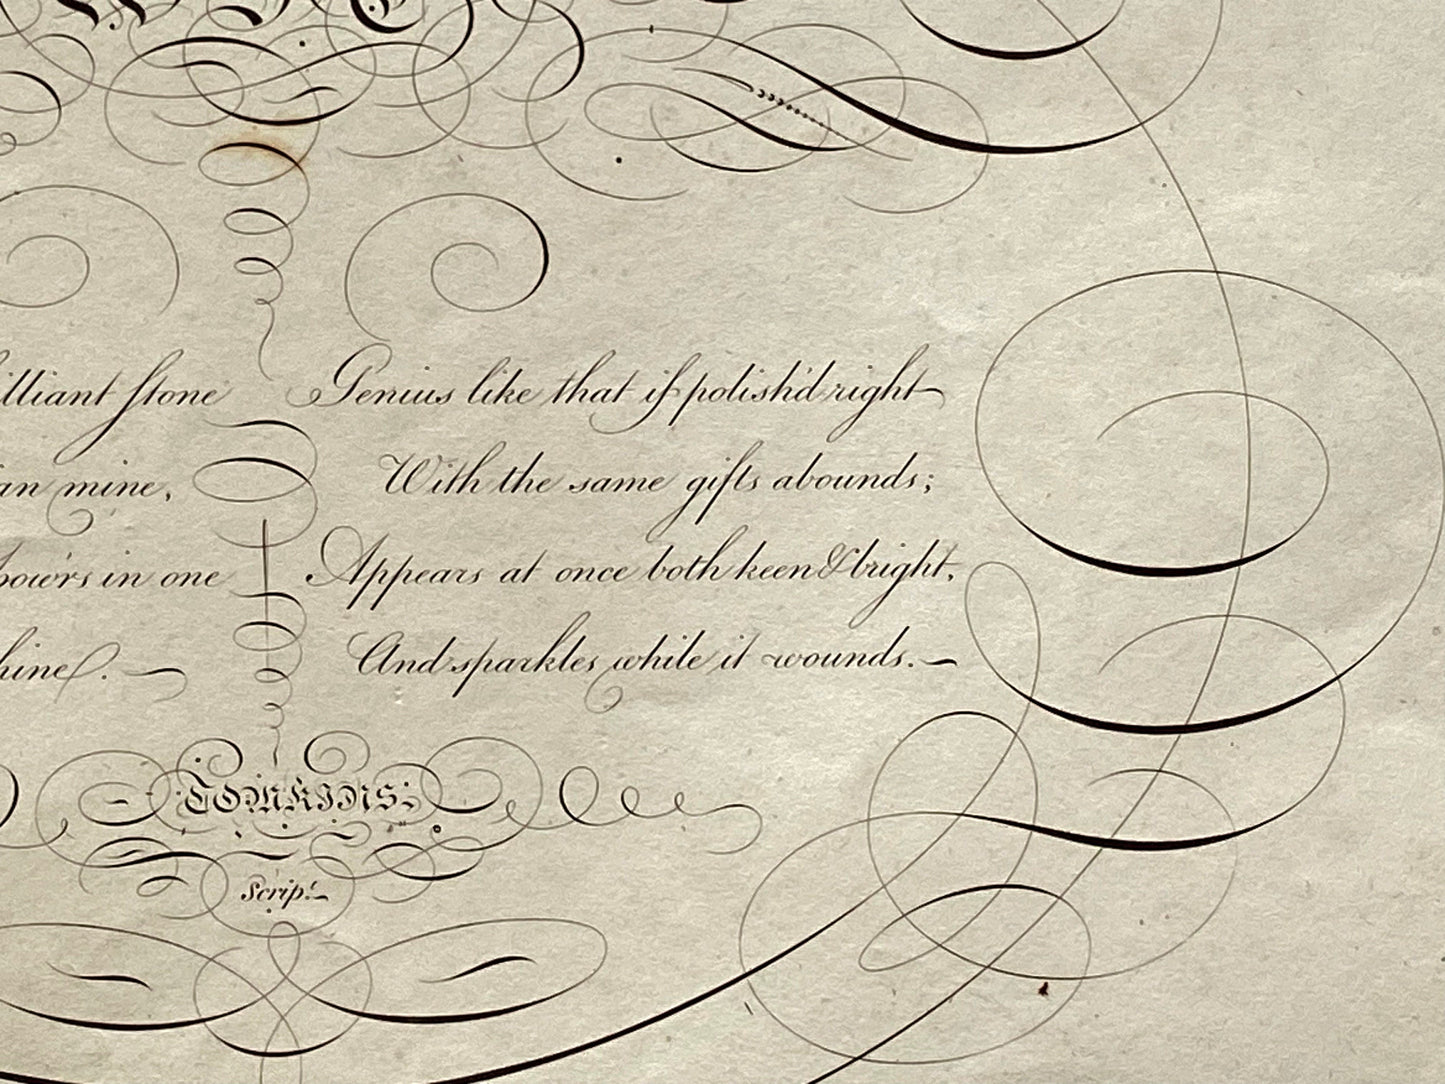 illiant stone
an mine,
pow'rs in one
hine.
Genius like that if polish'd right
With the same gifts abounds;
Appears at once both keen & bright,
And sparkles while it wounds.
TOMKINS
Script.